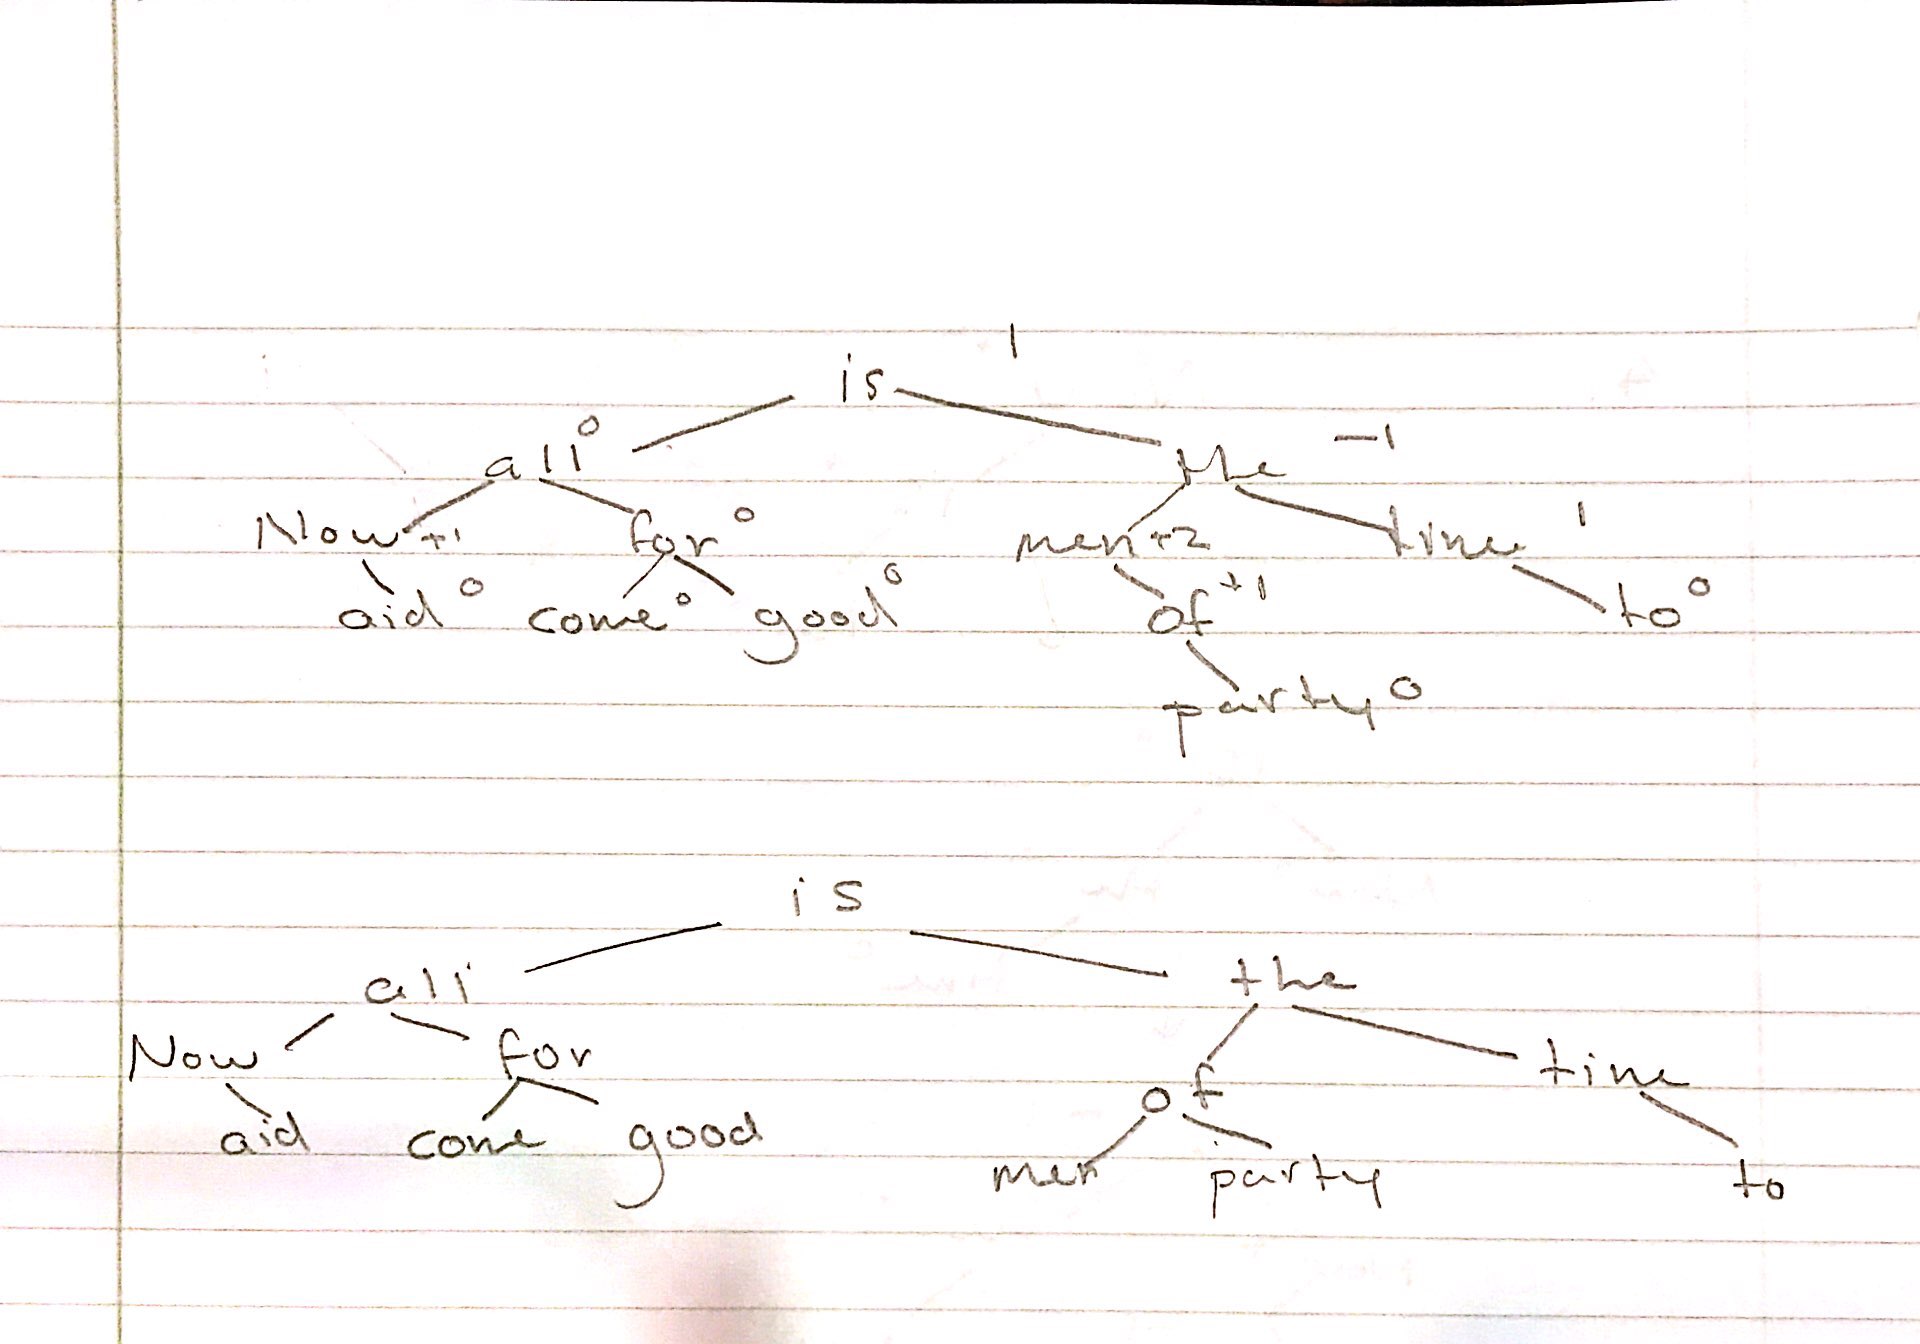 is 1
all 0 the -1
Now +1 for 0 men +2 time 1
aid 0 come 0 good 0 of +1 to 0
party 0
is
all the
Now for of time
aid come good men party to